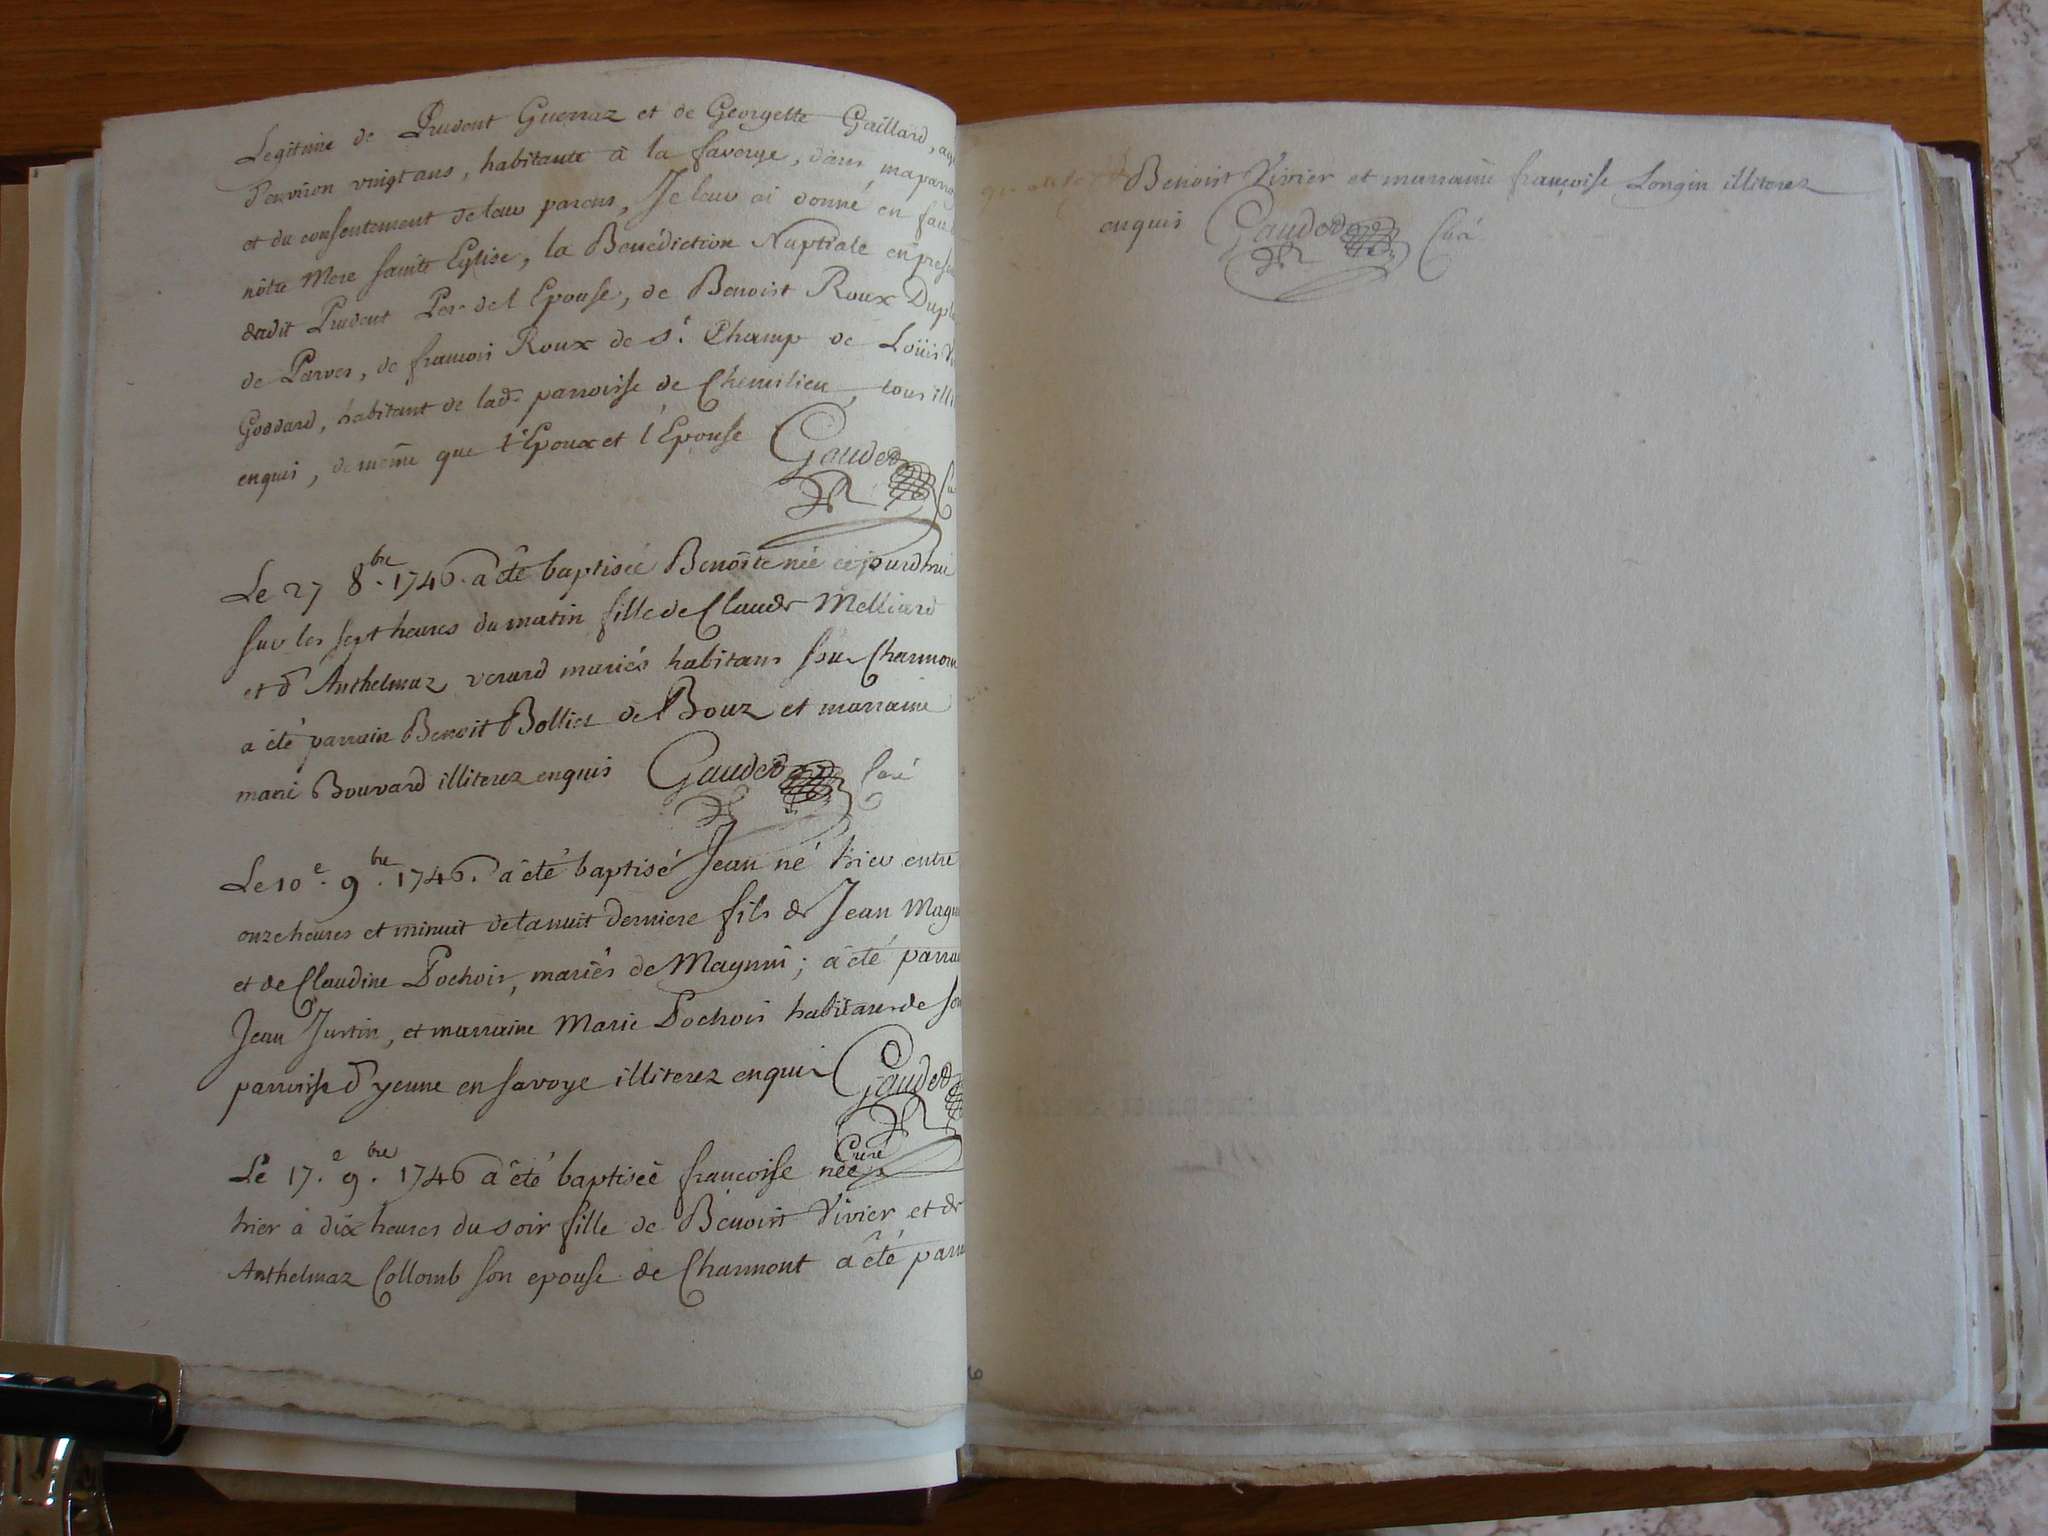 Legitime de Prudent Guerraz et de Georgette Gaillard,
d'environ vingt ans, habitante à la faverge, dans
et du consentement de leur parens, Je leur ai donné en
nôtre Mere sainte Eglise, la Benédiction Nuptiale en
dudit Prudent Per de l Epouse, de Benoist Roux
de Parves, de francois Roux de St. Champ de Loüis
Goddard, habitant de lade parroisse de Chemilieu, tous
enquis, de même que l'Epoux et l'Epouse Gauded
Le 27 8.bre 1746. a été baptisée Benoîte née ce jourdhui
sur les sept heures du matin fille de Claude Melliard
et d'Anthelmaz verard mariés habitans sur
a été parrain Benoit Bolliet de Bouz et marraine
marie Bouvard illiterez enquis Gauded Curé
Le 10e. 9.bre 1746. a été baptisé Jean né hier entre
onze heures et minuit de la nuit derniere fils de Jean
et de Claudine Pochois, mariés de Magnin; a été
Jean Justin, et marraine Marie Pochois habitans de
parroisse d'yenne en savoye illiterez enquis Gauded
Curé
Le 17.e 9.bre 1746 a été baptisée francoise née
hier à dix heures du soir fille de Benoist Vivier et de
Anthelmaz Collomb son epouse de Charmont a été
Benoist Vivier et marraine françoise Longin illiterez
enquis Gauded Curé